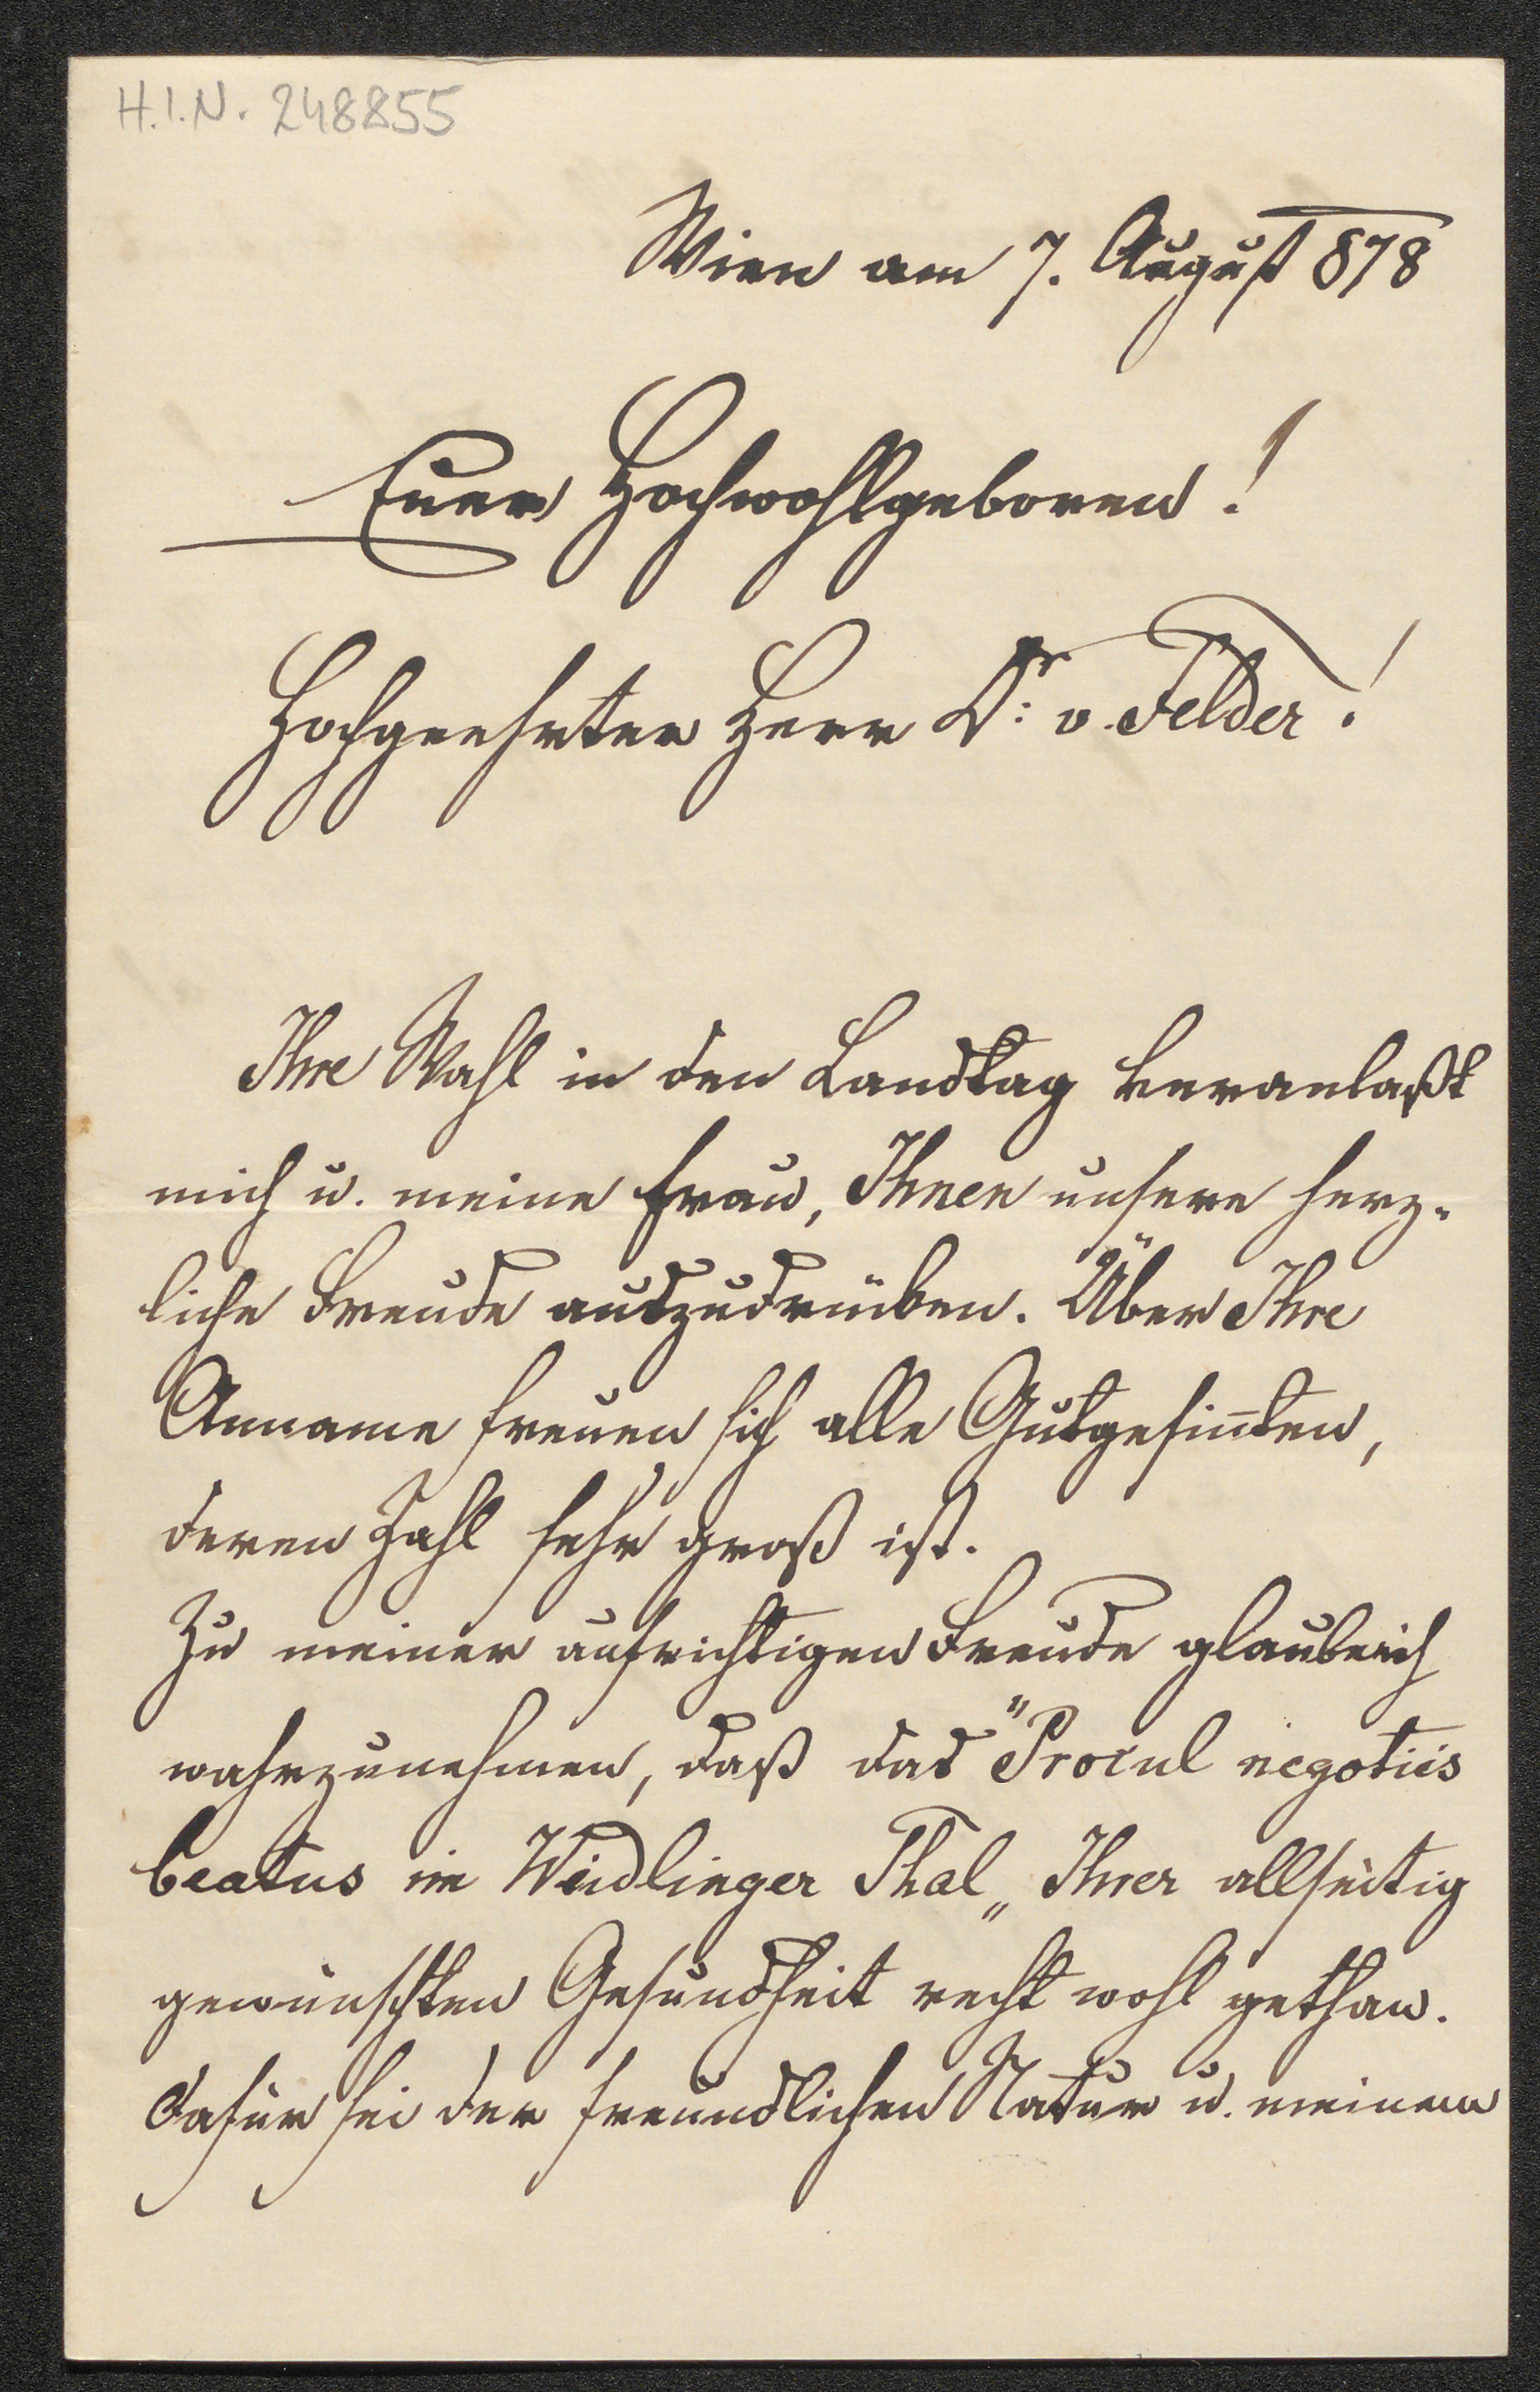 H.I.N. 248855
Wien am 7. August 878
Euer Hochwohlgeboren!
Hochgeehrter Herr Dr: v. Felder!
Ihre Wahl in den Landtag veranlaßt
mich u. meine Frau, Ihnen unsere herz-
liche Freude auszudrücken. Über Ihre
Anname freuen sich alle Gutgesinnten,
deren Zahl sehr groß ist.
Zu meiner aufrichtigen Freude glaube ich
wahrzunehmen, daß das "Procul negotiis
beatus im Weidlinger Thal„ Ihrer allseitig
gewünschten Gesundheit recht wohl gethan.
Dafür sei der freundlichen Natur u. meinem